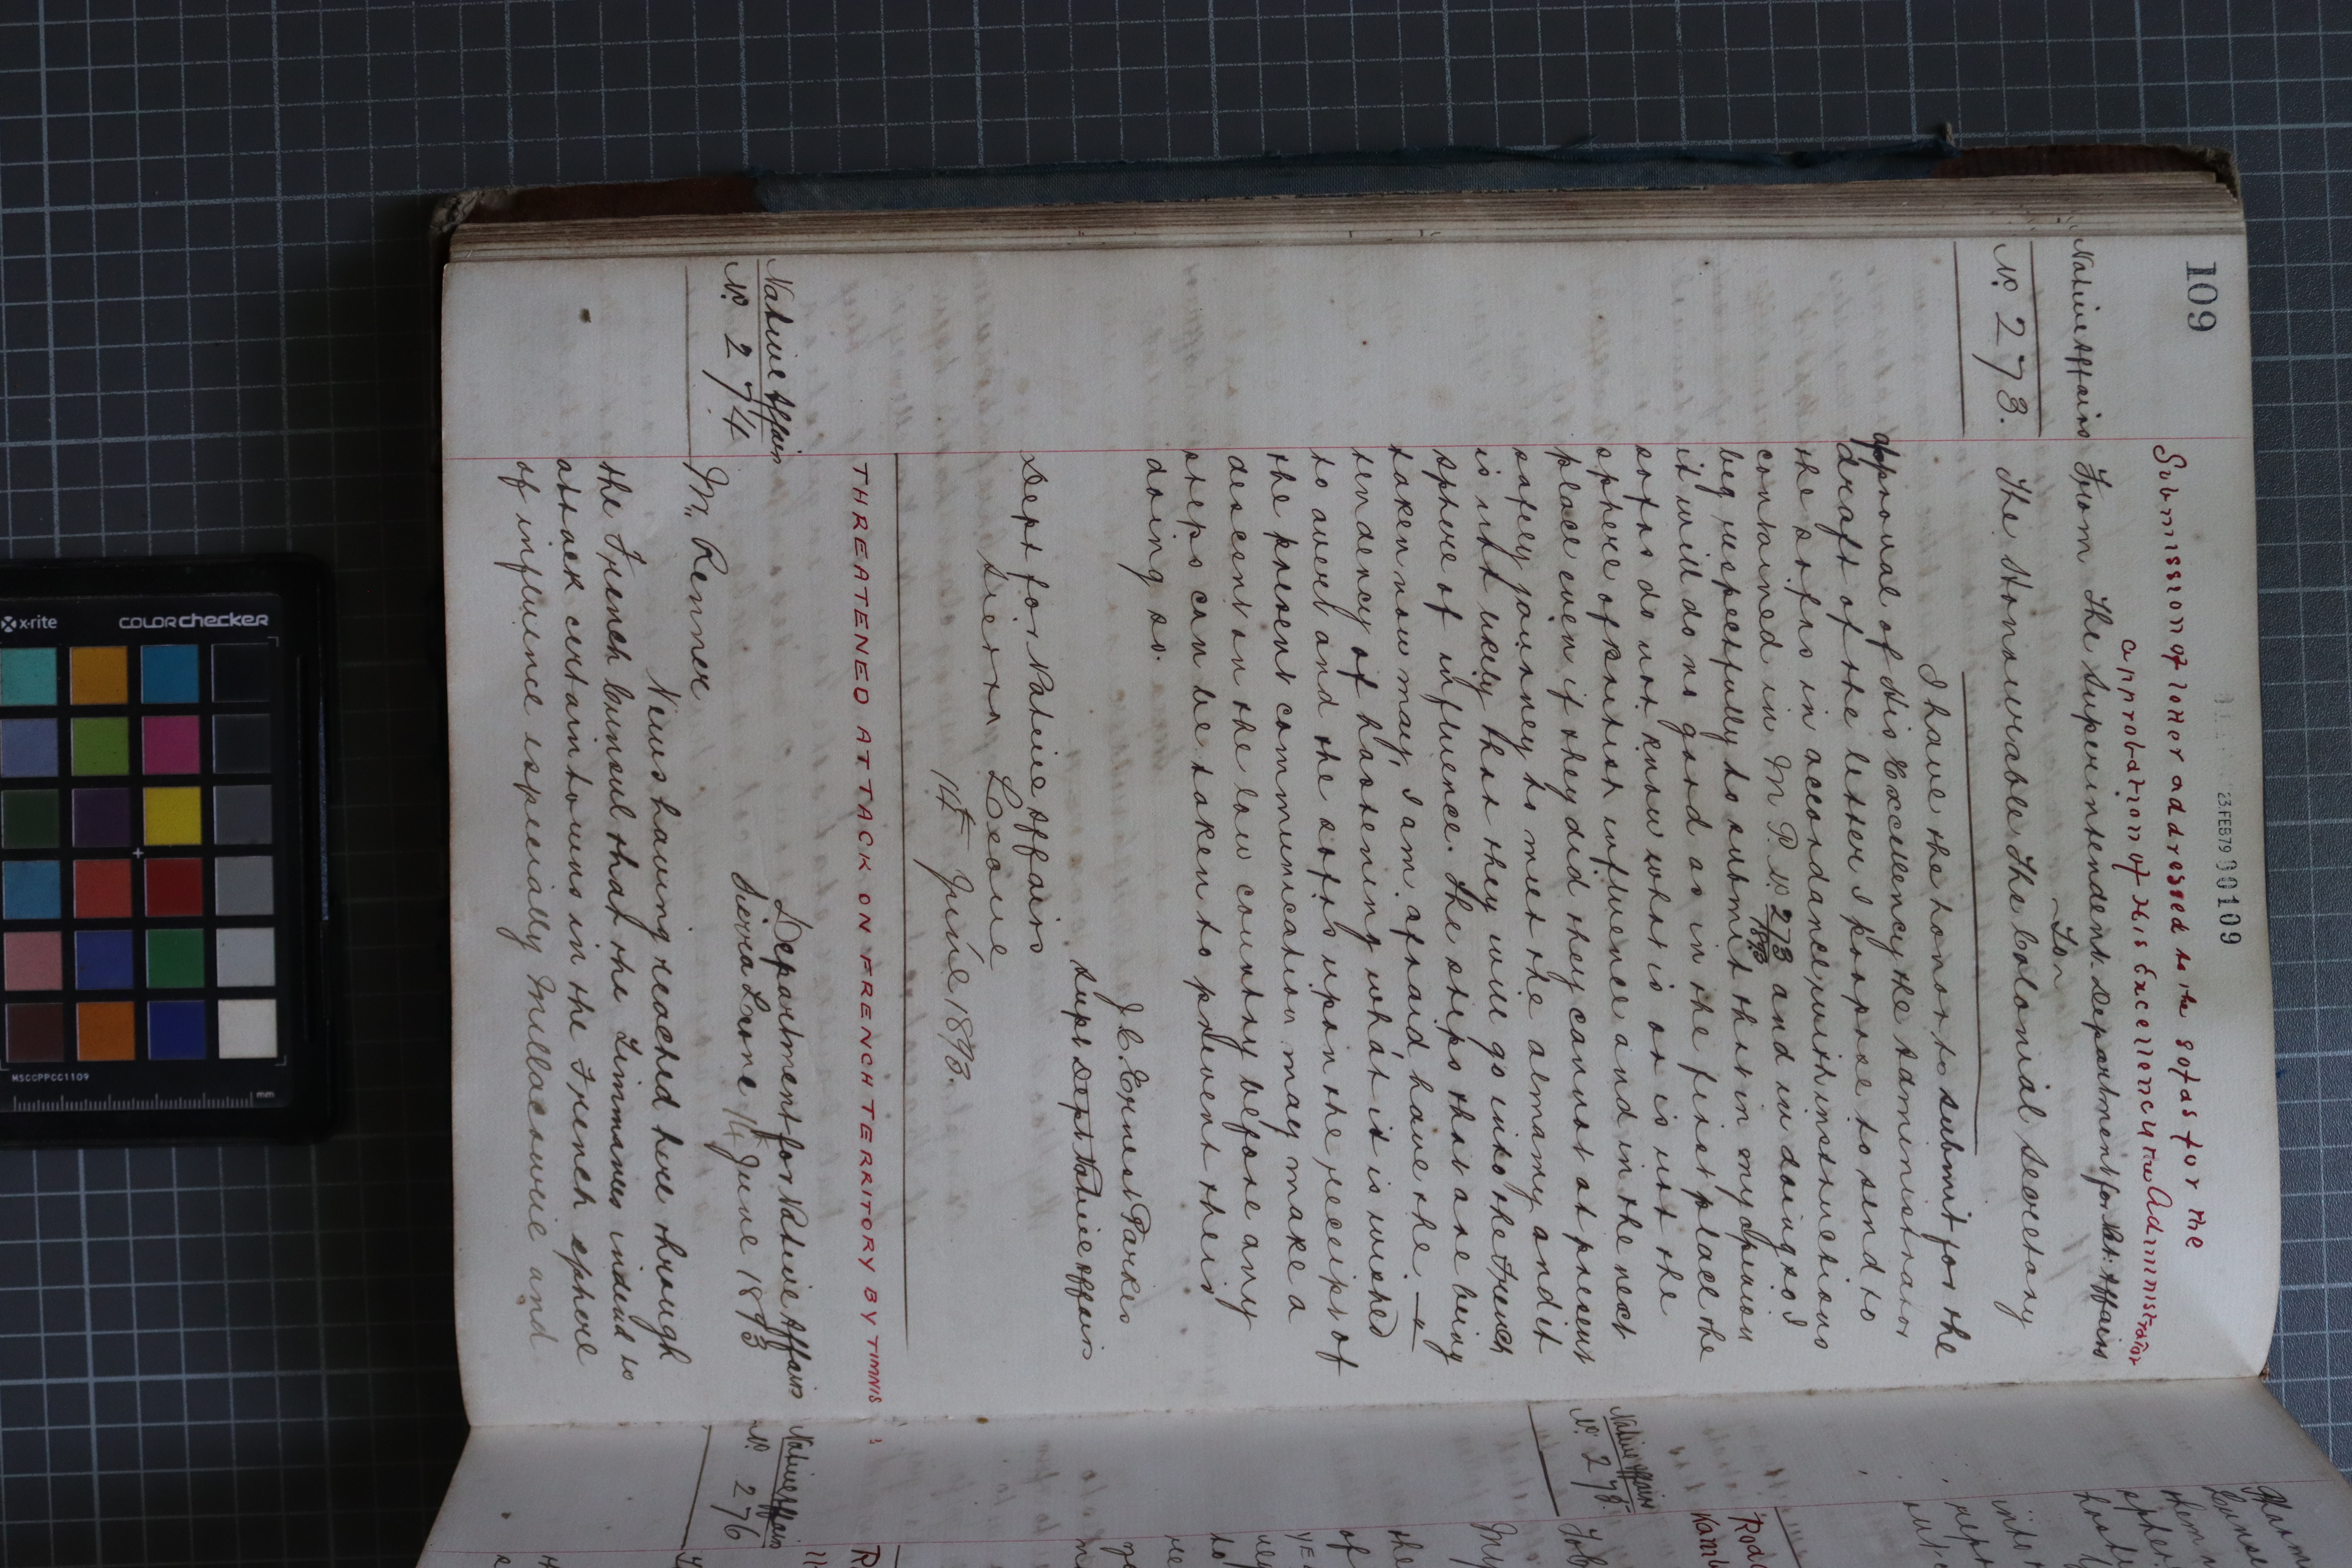 109
23 FEB 79 00109
Submission of letter addressed to the Sofas for the
approbation of His Excellency the Administrator
Native Affairs
From The Superintendent Department for Nat: Affairs
For
Nº 273.
The Honourable The Colonial Secretary
I have the honor to submit for the
approval of His Excellency the Administrator
draft of the letter I propose to send to
the sofas in accordance with instructions
contained in M P Nº 273/1893 and in doing so I
beg respectfully to submit that in my opinion
it will do no good as in the first place the
sofas do not know what is or is not the
sphere of British influence and in the next
place even if they did they cannot at present
safely journey to meet the almamy and it
is not likely that they will go into the French
sphere of influence. The steps that are being
taken now may, I am afraid have the
tendency of hastening what it is wished
to avert and the sofas upon the receipt of
the present communication may make a
descent on the low country before any
steps can be taken to prevent their
doing so.
J C Ernest Parkes
Supt Dept Native Affairs
Dept for Native Affairs
Sierra Leone
14th June 1893.
THREATENED ATTACK ON FRENCH TERRITORY BY TIMNIS
Native Affairs
Nº 274
Department for Native Affairs
Sierra Leone 14th June 1893
Mr. Renner
News having reached here through
the French Consul that the Timmanees intend to
attack certain towns in the French sphere
of influence especially Mellacourie and
Native Affairs
Nº 275.
Native Affairs
Nº 276